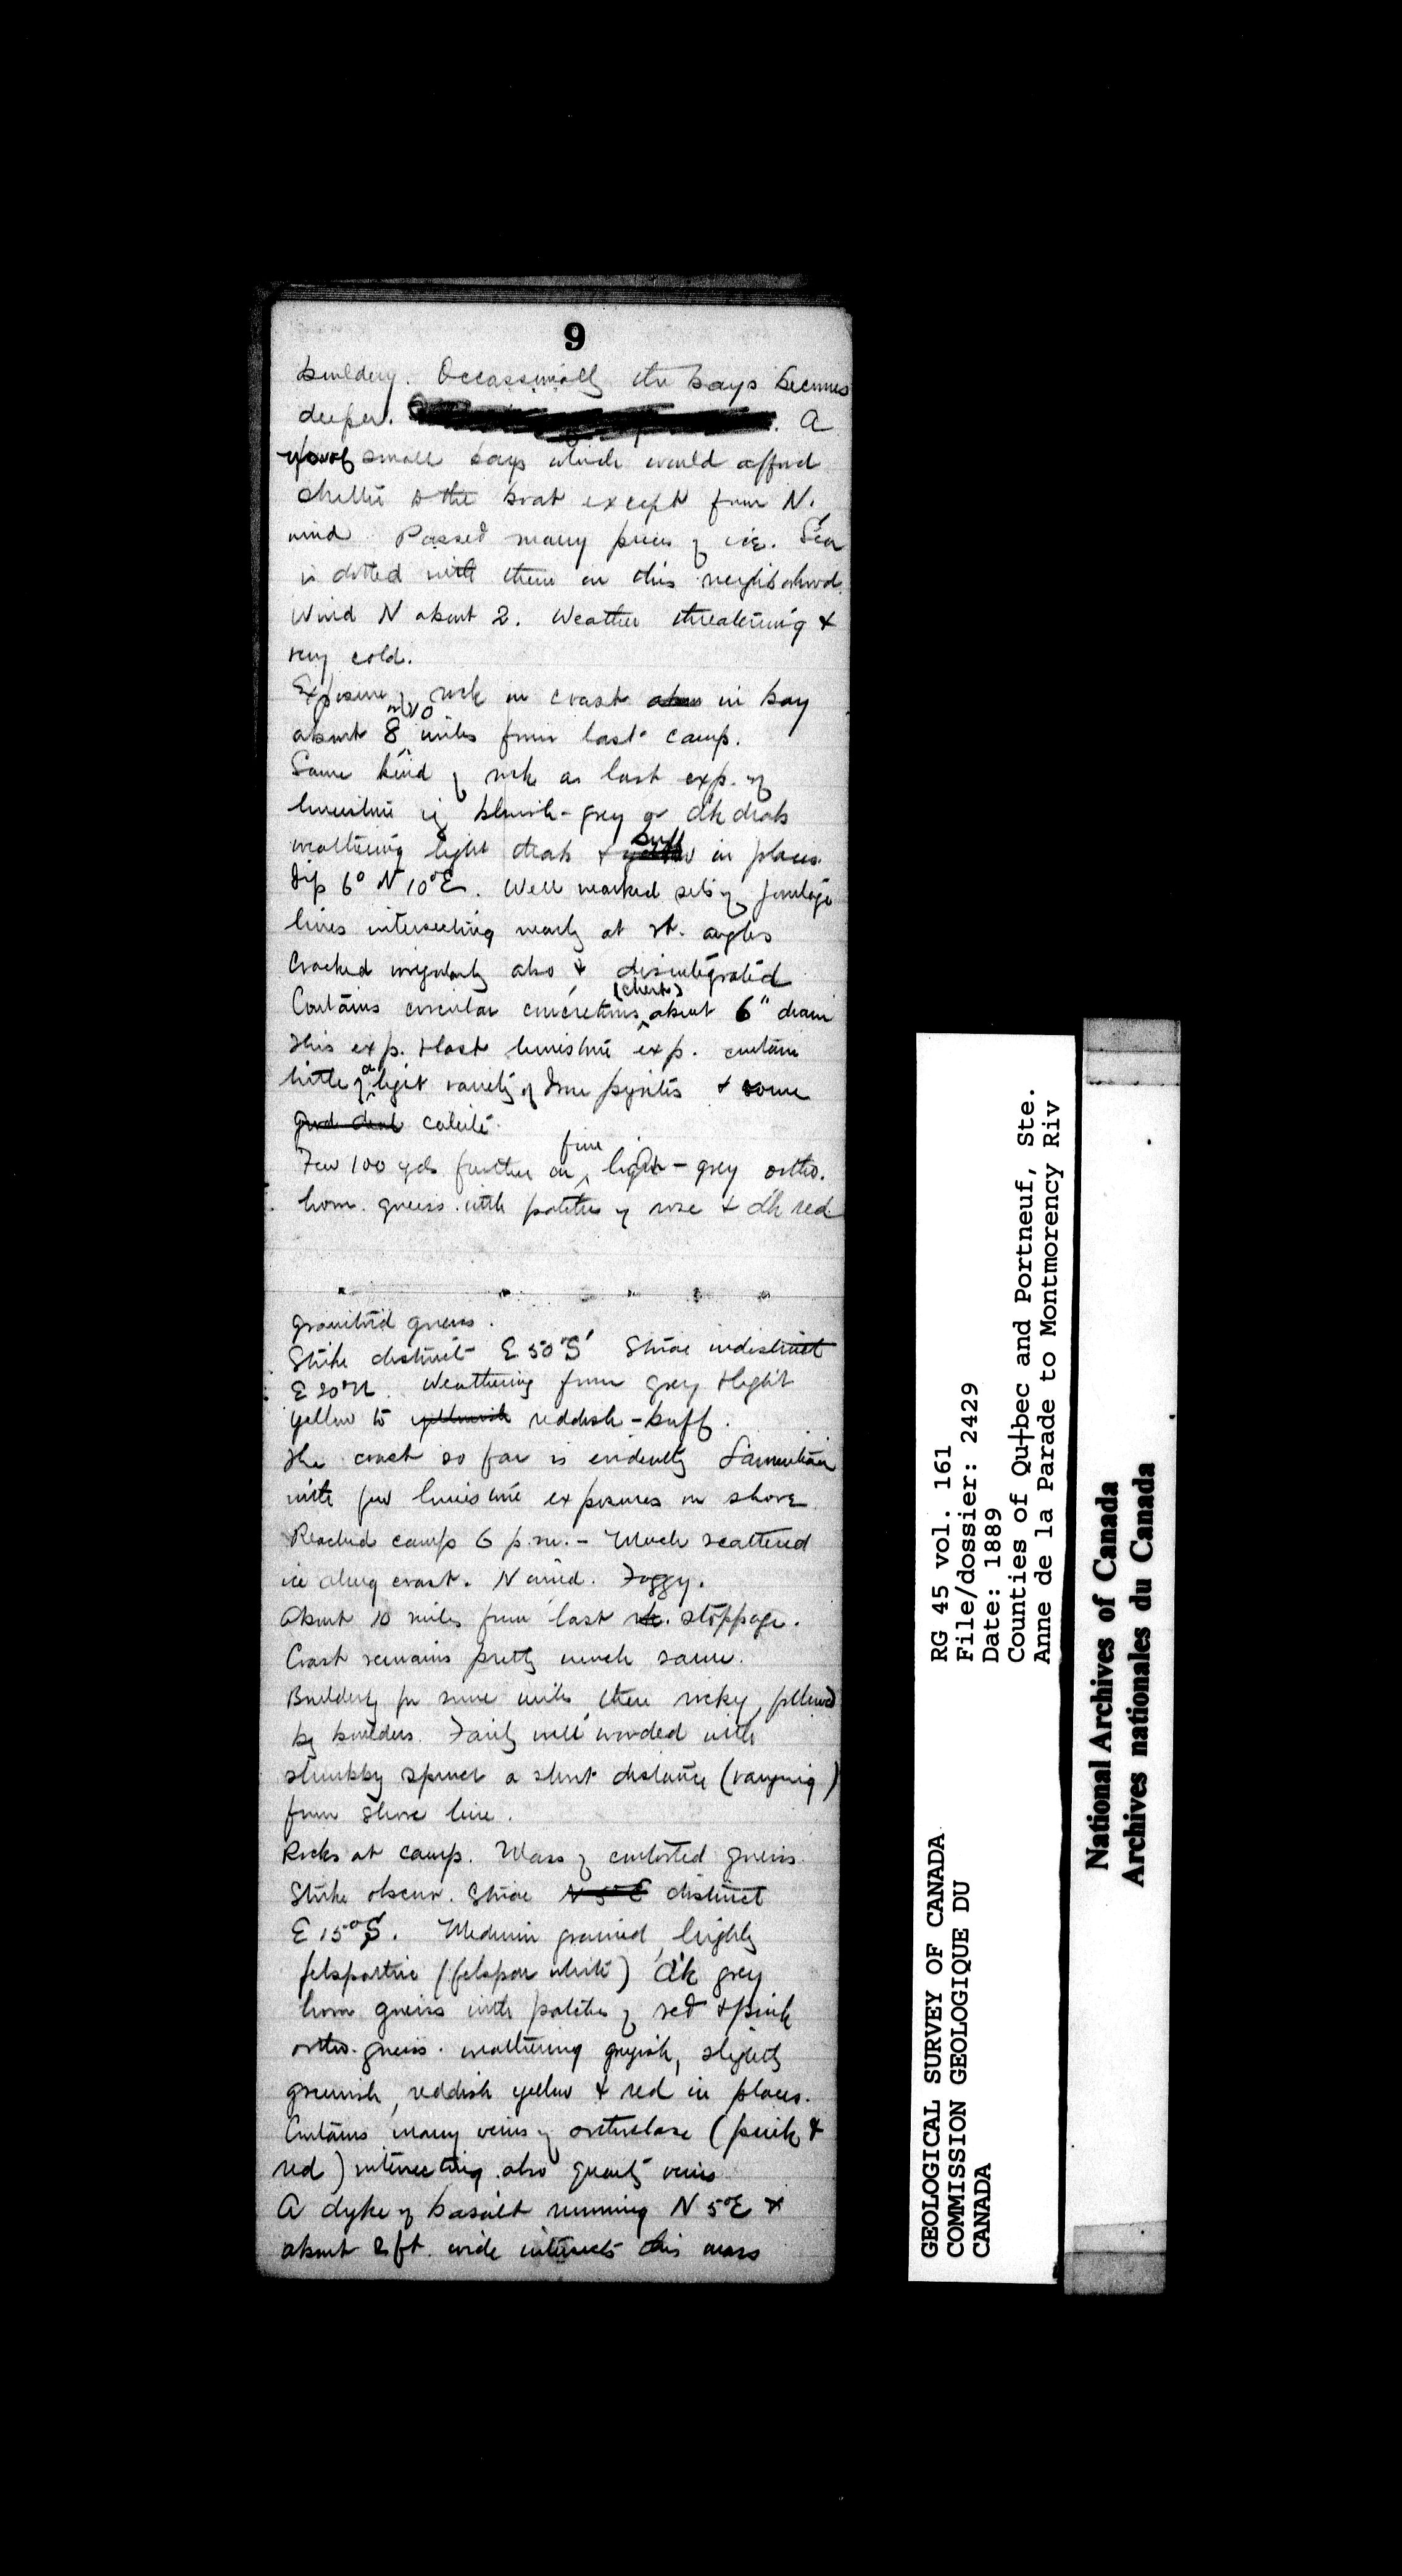 9
bouldery. Occassionally the bays becomes
deeper. A
small bays which would afford
shelter to the boat except from N.
wind Passed many pieces of ice. Sea
is dotted with them in this neighborhood.
Wind N about 2. Weather threatening &
very cold.
Exposure of rock on coast in bay
about 8 or 10 miles from last camp.
Same kind of rock as last exp. of
limestone ig bluish-grey or dk drab
weathering light drab & buff in places.
Dip 6° N 10°E. Well marked sets of jointage
lines intersecting nearly at rt. angles
Cracked irregularly also & disintegrated
Contains circular concretions (chert) about 6" diam
This exp. & last limestone exp. contain
little of a light variety of Iron pyrites & some
good deal calcite.
Few 100 yds further on fine light-grey ortho.
horn. gneiss with patches of rose & dk red
granitoid gneiss.
Strike distinct E 50°S Striae indistinct
E 20°N. Weathering from grey & light
yellow to yellowish reddish-buff.
The coast so far is evidently Laurentian
with few limestone exposures on shore
Reached camp 6 p.m. - Much scattered
ice along coast. N wind. Foggy.
About 10 miles from last stoppage.
Coast remains pretty much same.
Bouldery for some miles then rocky, followed
by boulders. Fairly well wooded with
shrubby spruce a short distance (varying)
from shore line.
Rocks at camp. Mass of contorted gneiss.
Strike obscure. Striae N 5° E distinct
E 15°S. Medium grained, highly
felspathic (felspar white) dk grey
horn gneiss with patches of red & pink
ortho. gneiss. weathering greyish, slightly
greenish, reddish yellow & red in places.
Contains many veins of orthoclase (pink &
red) intersecting also quartz veins
A dyke of basalt running N 5°E &
about 2 ft. wide intersects this mass
GEOLOGICAL SURVEY OF CANADA
COMMISSION GEOLOGIQUE DU
CANADA
RG 45 vol. 161
File/dossier: 2429
Date: 1889
Counties of Qu┼bec and Portneuf, Ste.
Anne de la Parade to Montmorency Riv
National Archives of Canada
Archives nationales du Canada